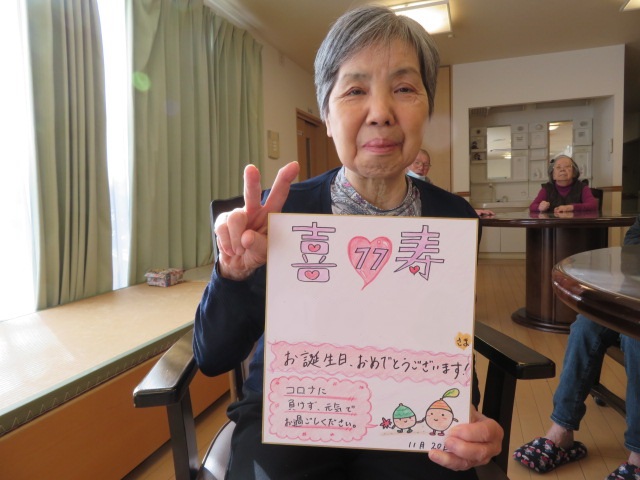 喜 77 寿
さま
お誕生日、おめでとうございます!
コロナに
負けず、元気で
お過ごしください。
11月20日